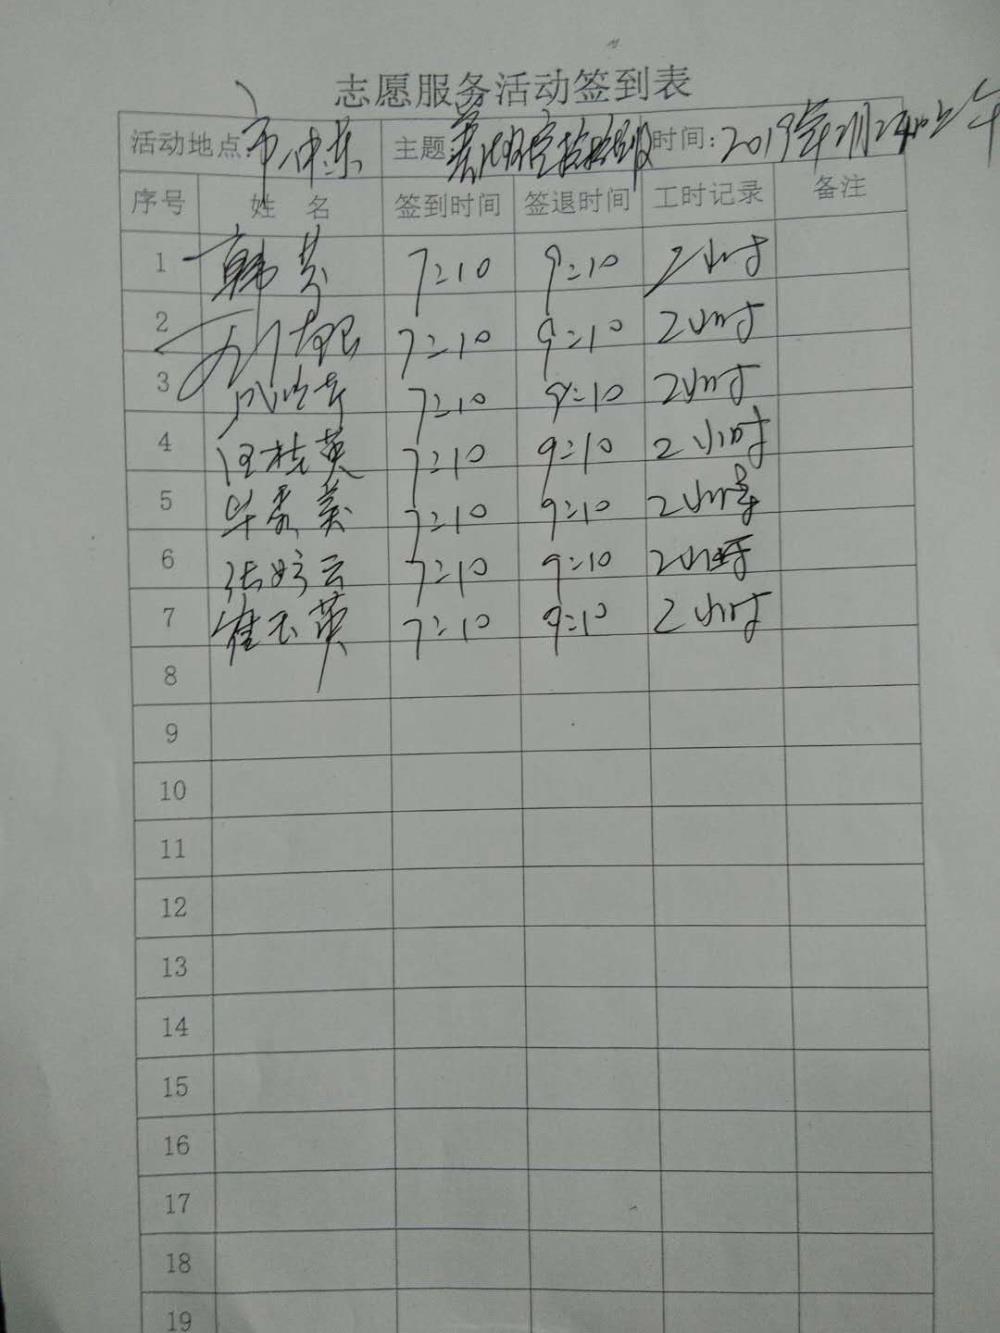 志愿服务活动签到表
活动地点: 主题: 时间: 2019年
序号 姓 名 签到时间 签退时间 工时记录 备注
1 韩芬 7:10 9:10 2小时
2 7:10 9:10 2小时
3 7:10 9:10 2小时
4 汪桂英 7:10 9:10 2小时
5 毕秀英 7:10 9:10 2小时
6 张 云 7:10 9:10 2小时
7 崔玉英 7:10 9:10 2小时
8
9
10
11
12
13
14
15
16
17
18
19